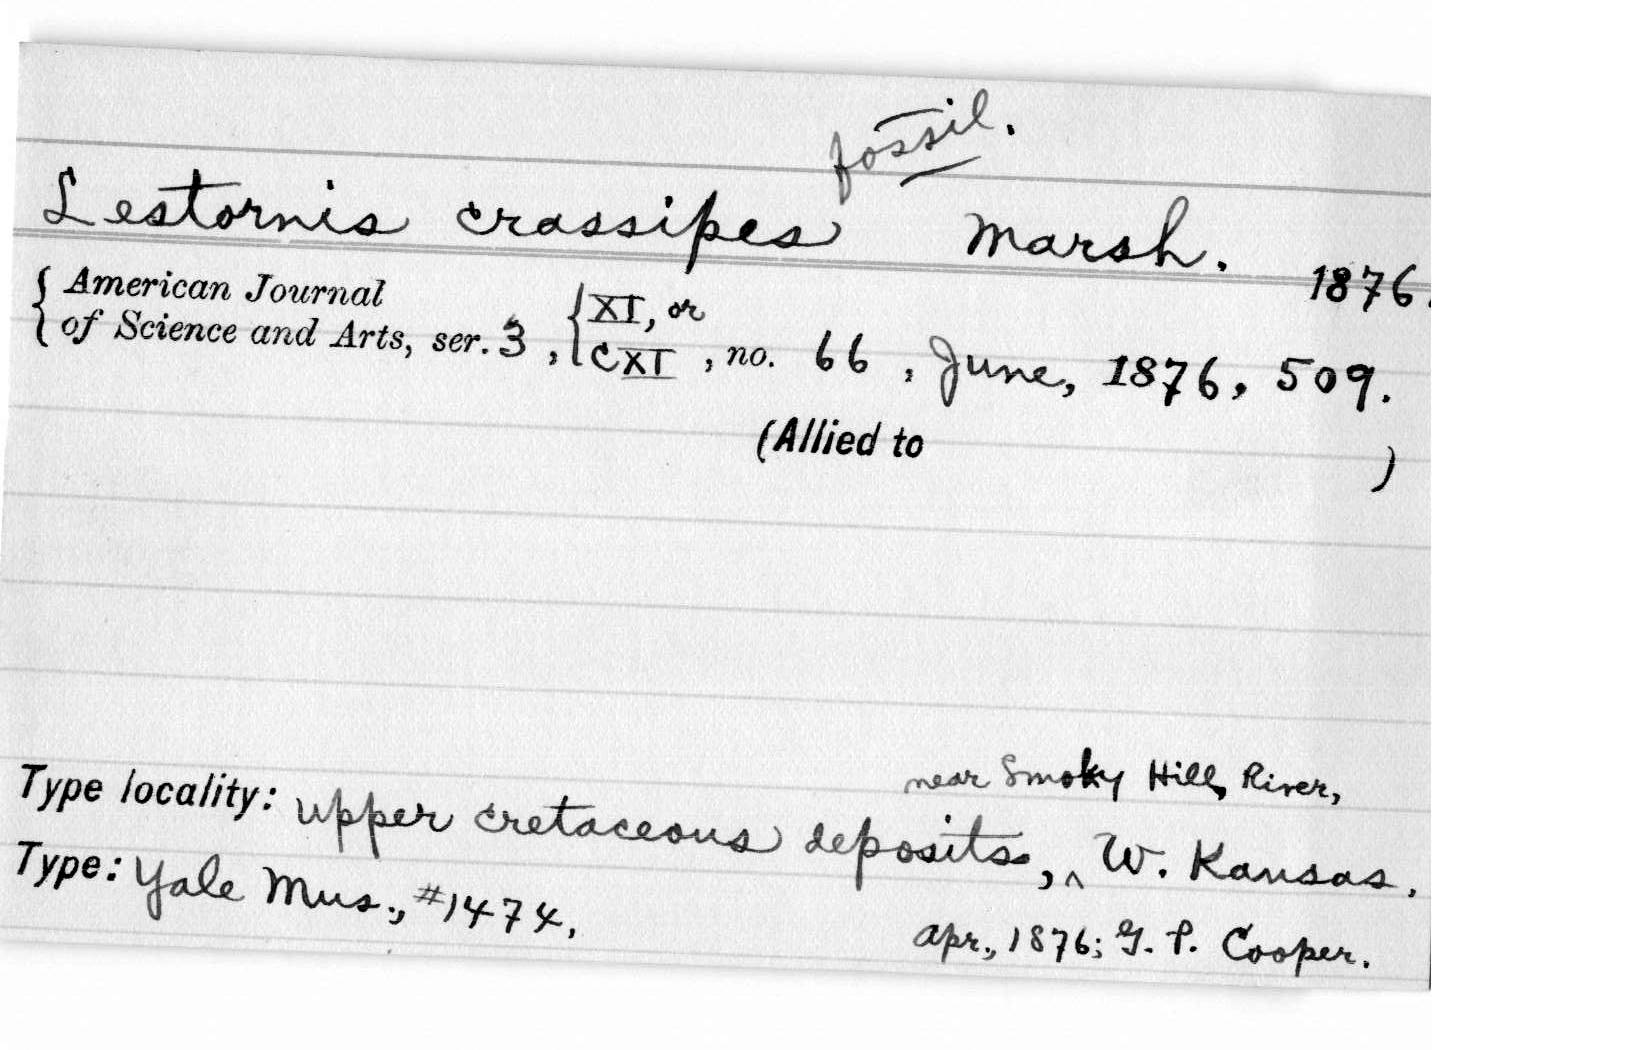 fossil.
Lestornis crassipes Marsh.
1876.
{ American Journal { XI, or
of Science and Arts, ser. 3, CXI, no. 66, June, 1876, 509.
(Allied to )
near Smoky Hill River,
Type locality: upper cretaceous deposits, ^ W. Kansas.
Type: Yale Mus., #1474,
Apr., 1876; G. P. Cooper.